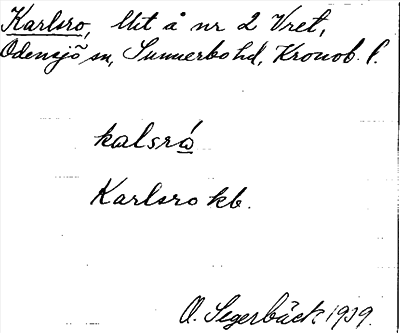 Karlsro, lht å nr 2 Vret,
Odensjö sn, Sunnerbo hd, Kronob. l.
kalsró
Karlsro kb.
O. Segerbäck 1919.